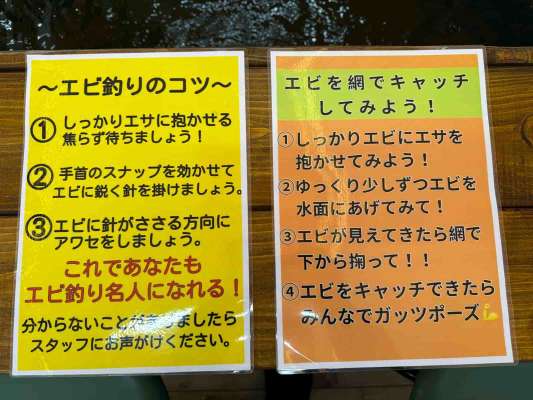 〜エビ釣りのコツ〜
①しっかりエサに抱かせる
焦らず待ちましょう！
②手首のスナップを効かせて
エビに鋭く針を掛けましょう。
③エビに針がささる方向に
アワセをしましょう。
これであなたも
エビ釣り名人になれる！
分からないことがありましたら
スタッフにお声がけください。
エビを網でキャッチ
してみよう！
①しっかりエビにエサを
抱かせてみよう！
②ゆっくり少しずつエビを
水面にあげてみて！
③エビが見えてきたら網で
下から掬って！！
④エビをキャッチできたら
みんなでガッツポーズ💪